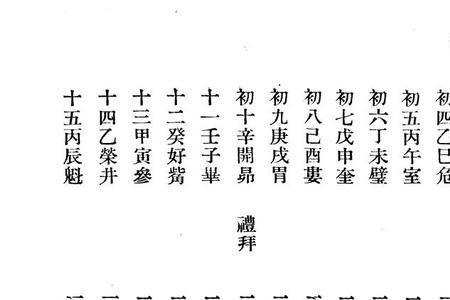 初四乙巳危
初五丙午室
初六丁未璧
初七戊申奎
初八己酉婁
初九庚戌胃
初十辛開昴 禮拜
十一壬子畢
十二癸好觜
十三甲寅參
十四乙榮井
十五丙辰魁